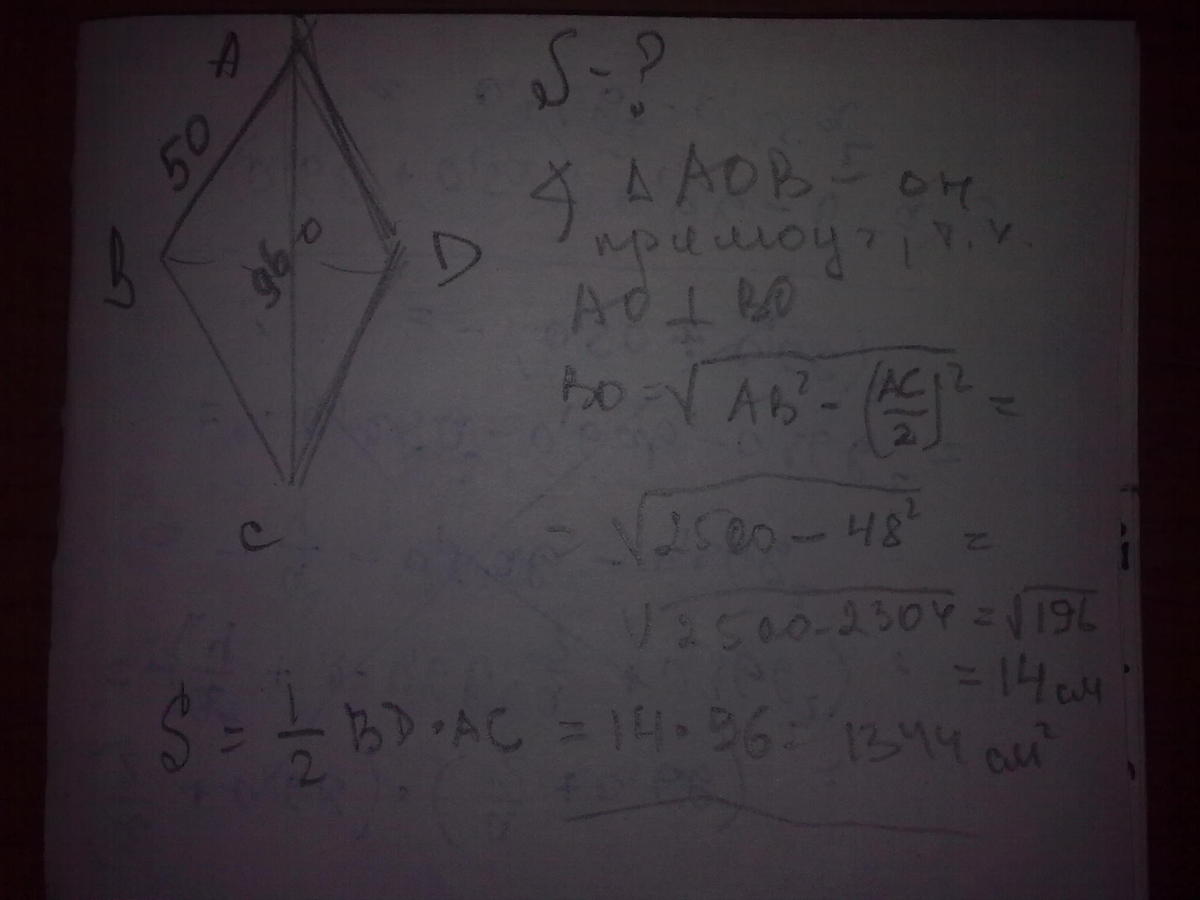 A
50
B
96
O
D
C
S - ?
∠ Δ AOB - он
прямоуг, т.к.
AO ⊥ BO
BO = √(AB² - (AC/2)²) =
= √(2500 - 48²) =
√(2500 - 2304) = √196
= 14 см
S = 1/2 BD · AC = 14 · 96 = 1344 см²